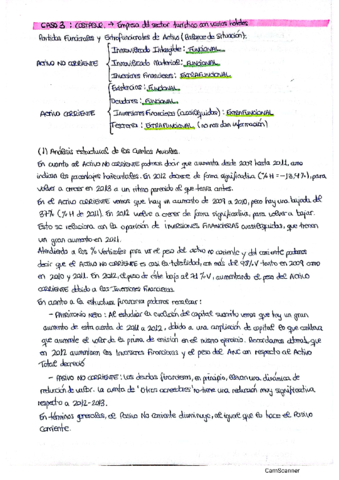 CASO 3: COSTASUR. → Empresa del sector turístico con varios hoteles
Partidas Funcionales y Extrafuncionales de Activo (Balance de Situación):
ACTIVO NO CORRIENTE
Inmovilizado Intangible: FUNCIONAL
Inmovilizado Material: FUNCIONAL
Inversiones Financieras: EXTRAFUNCIONAL
ACTIVO CORRIENTE
Existencias: FUNCIONAL
Deudores: FUNCIONAL
Inversiones Financieras (cuasilíquidos): EXTRAFUNCIONAL
Tesorería: EXTRAFUNCIONAL (no nos dan información)
(1) Análisis estructural de las Cuentas Anuales.
En cuanto al ACTIVO NO CORRIENTE podemos decir que aumenta desde 2009 hasta 2011, como
indican los porcentajes horizontales. En 2012 decrece de forma significativa (%H = -18.4%), para
volver a crecer en 2013 a un ritmo parecido al que tenía antes.
En el ACTIVO CORRIENTE vemos que hay un aumento de 2009 a 2010, pero hay una bajada del
37% (%H de 2011). En 2012 vuelve a crecer de forma significativa, para volver a bajar.
Esto se relaciona con la aparición de INVERSIONES FINANCIERAS cuasilíquidas, que tienen
un gran aumento en 2011.
Atendiendo a los % verticales para ver el peso del activo no corriente y del corriente podemos
decir que el ACTIVO NO CORRIENTE es casi la totalidad, con más del 98% V tanto en 2009 como
en 2010 y 2011. En 2012, el peso de éste baja al 71% V, aumentando el peso del ACTIVO
CORRIENTE debido a las Inversiones Financieras.
En cuanto a la estructura financiera podemos resaltar:
- PATRIMONIO NETO: Al estudiar la evolución del capital suscrito vemos que hay un gran
aumento de esta cuenta de 2011 a 2012, debido a una ampliación de capital lo que conlleva
que aumente el valor de la prima de emisión en el mismo ejercicio. Recordamos además, que
en 2012 aumentan las Inversiones Financieras y el peso del ANC con respecto al Activo
Total decreció
- PASIVO NO CORRIENTE: Las deudas financieras, en principio, llevan una dinámica de
reducción de valor. La cuenta de "Otros acreedores" no tiene una reducción muy significativa
respecto a 2012-2013.
En términos generales, el Pasivo No Corriente disminuye, al igual que lo hace el Pasivo
Corriente.
CamScanner